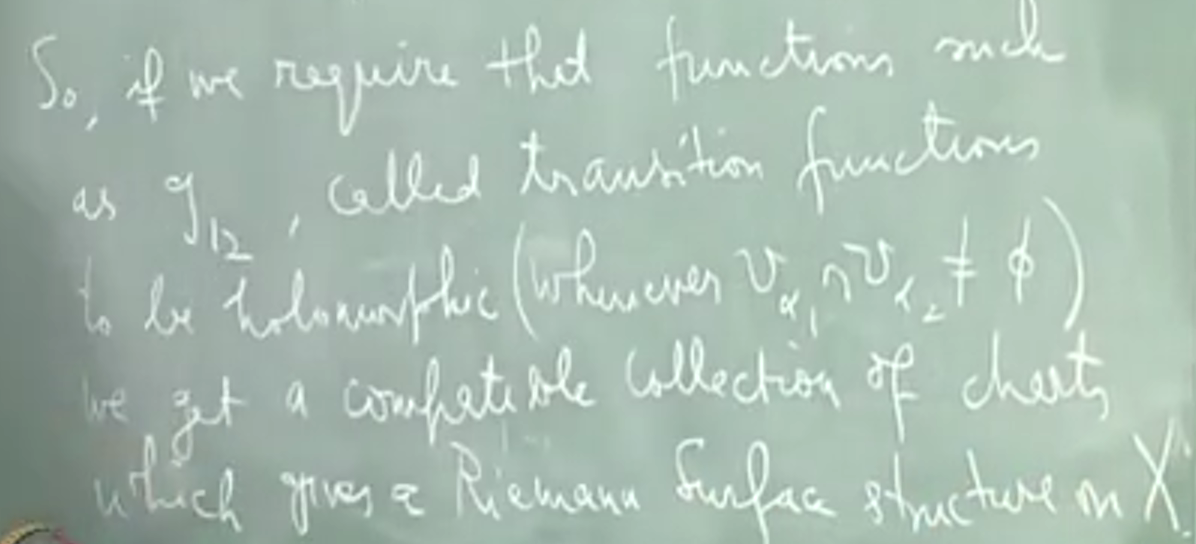 So, if we require that functions such
as g₁₂, called transition functions
to be holomorphic (whenever V_α₁ ∩ V_α₂ ≠ ϕ)
we get a compatible collection of charts,
which gives a Riemann Surface structure on X.